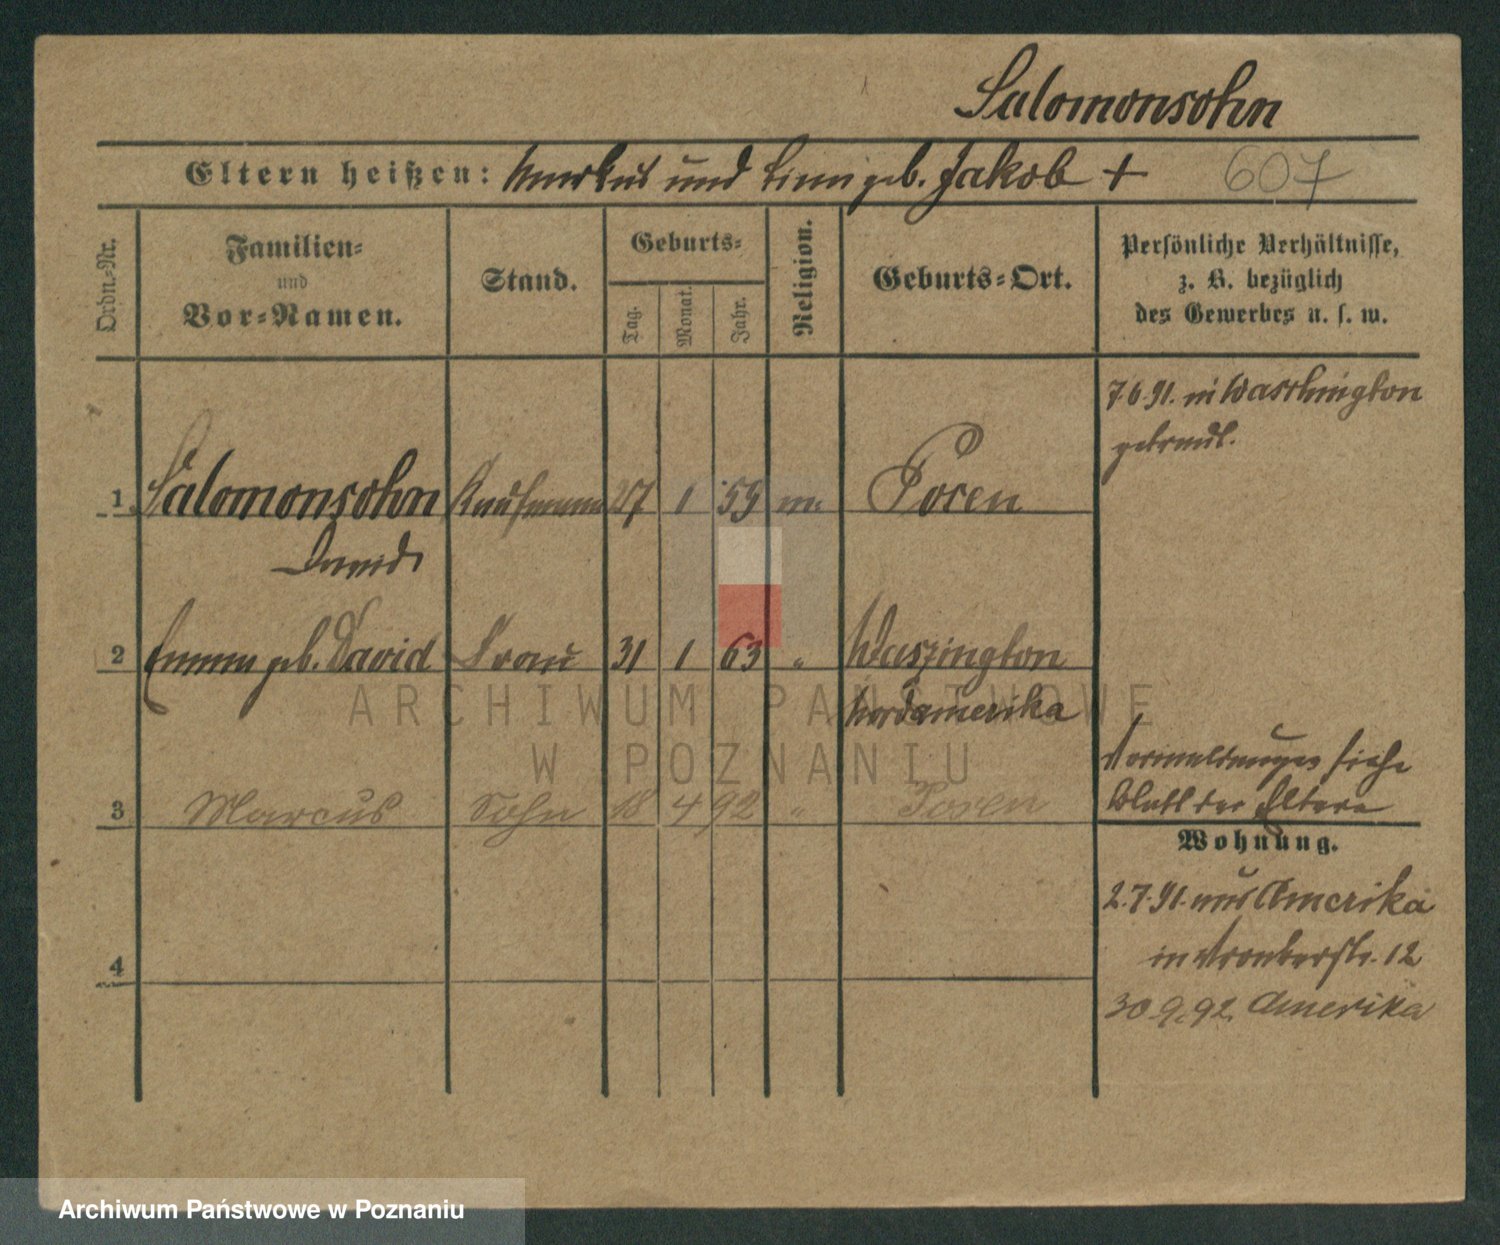 Salomonsohn
Eltern heißen: Markus und Linni geb. Jakob + 607
Ordn.-Nr.
Familien-
und
Vor-Namen.
Stand.
Geburts-
Tag. Monat. Jahr.
Religion.
Geburts-Ort.
Persönliche Verhältnisse,
z. B. bezüglich
des Gewerbes u. s. w.
7.6.91. in Washington
getraut.
1 Salomonsohn Kaufmann 27 1 59 m. Posen
David
2 Emma geb. David Frau 31 1 63 " Waszington
Nordamerika
ARCHIWUM PAŃSTWOWE
W POZNANIU
3 Marcus Sohn 18 4 92 " Posen
siehe
Blatt der Eltern
Wohnung.
2.7.91. aus Amerika
in 12
30.9.92. Amerika
4
Archiwum Państwowe w Poznaniu